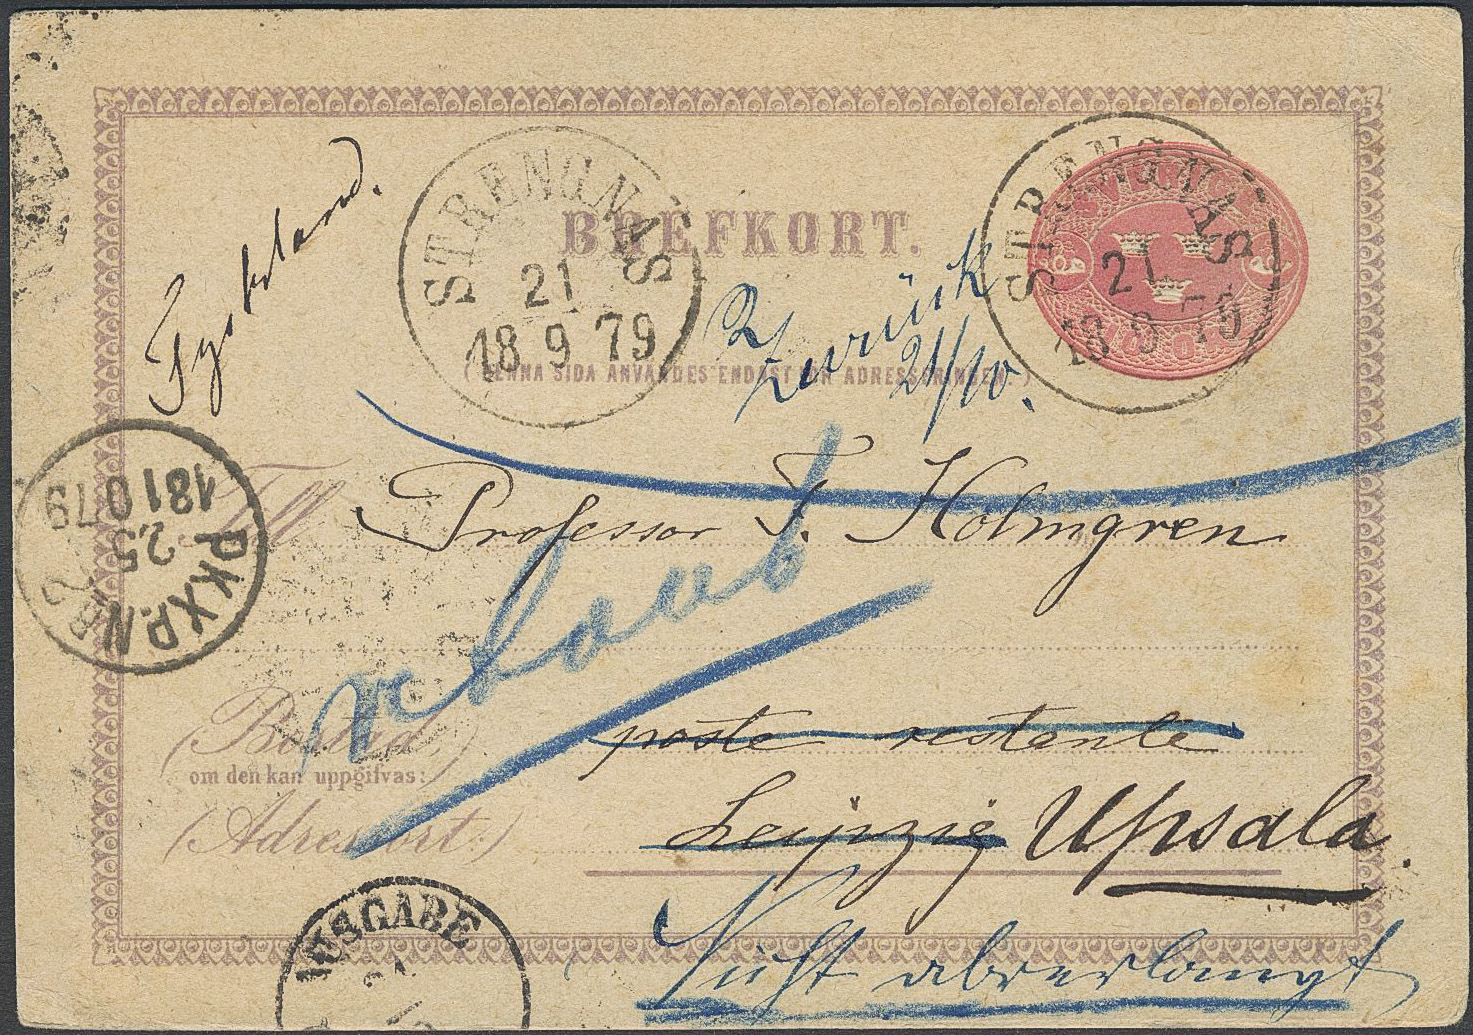 BREFKORT.
STRENGNÄS
21
18 9 79
STRENGNÄS
21
18 9 79
SVERIGE
Tyskland.
zurück
21/10.
(DENNA SIDA ANVÄNDES ENDAST FÖR ADRESSERINGEN.)
Till
Professor F. Holmgren
PKXP. Nr 2
25
18 10 79
poste restante
(Bostad)
om den kan uppgifvas:
(Adressort:)
Leipzig Upsala.
AUSGABE
Nicht abverlangt